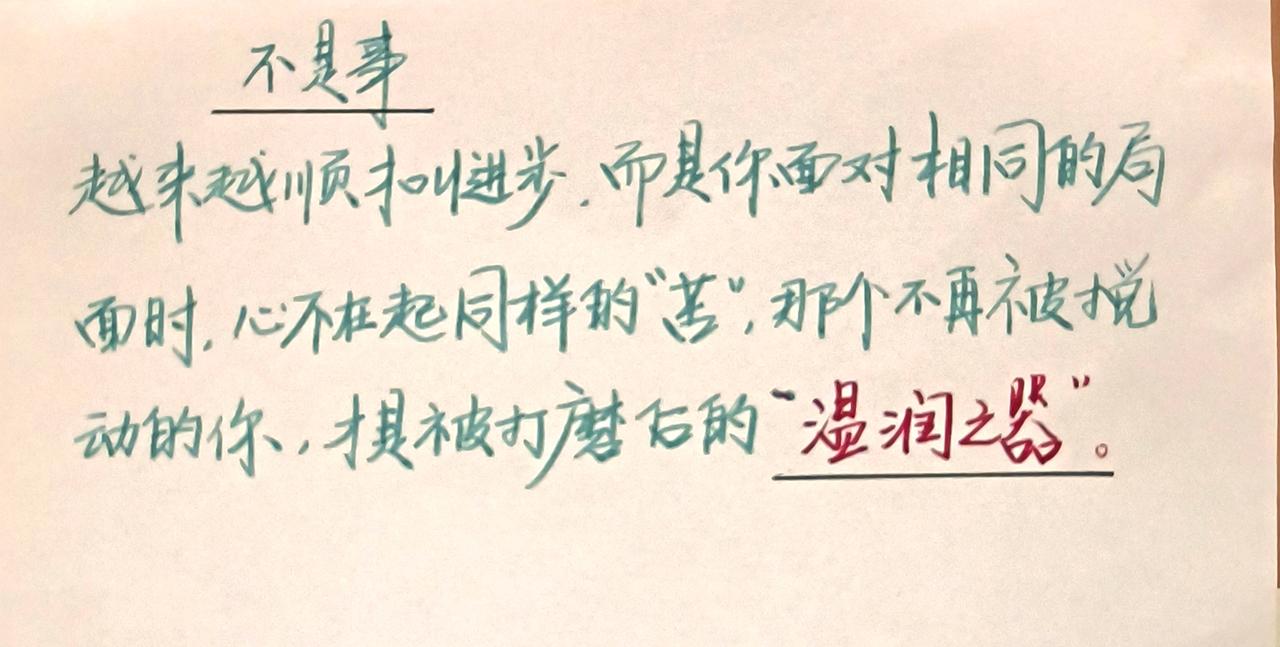 不是事
越来越顺才叫进步.而是你面对相同的局
面时,心不在起同样的“苦”,那个不再被搅
动的你,才是被打磨后的“温润之器”。